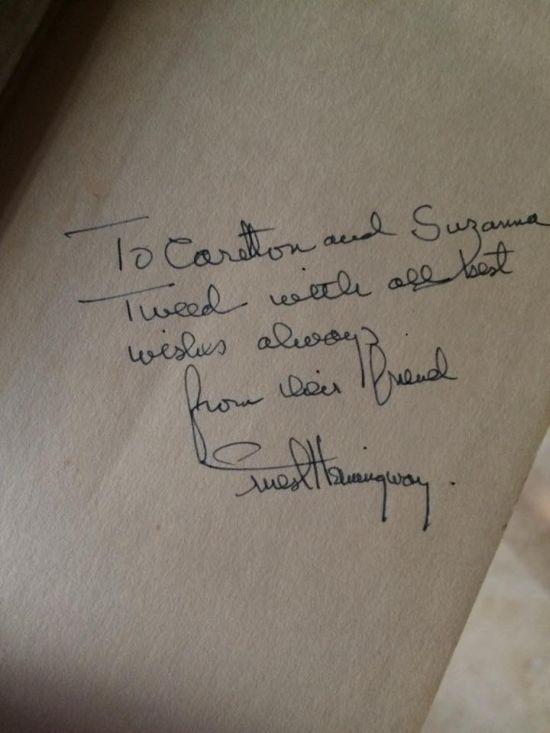 To Carleton and Suzanna
Tweed with all best
wishes always
from their friend
Ernest Hemingway.